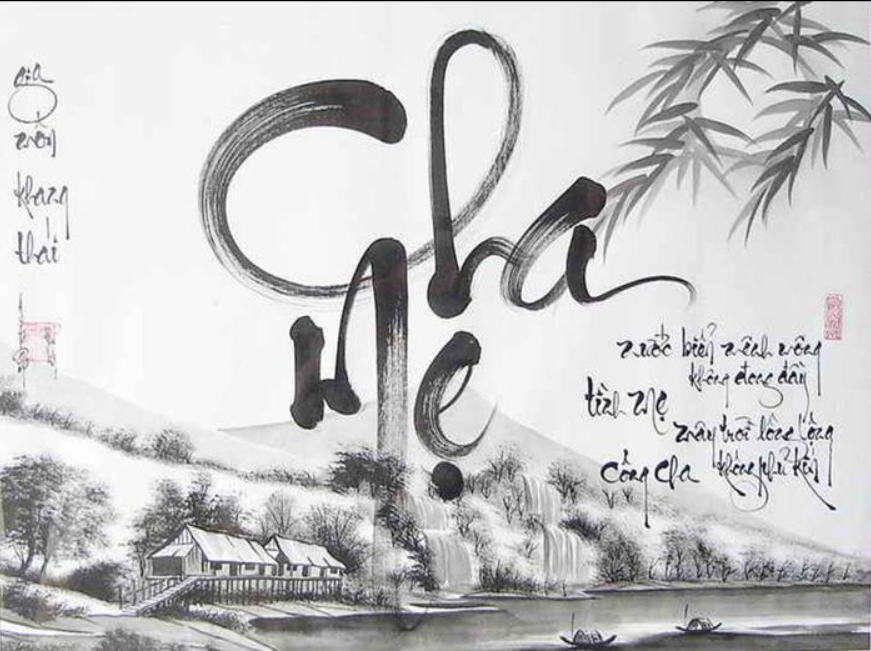 Cha
Mẹ
gia
môn
khang
thái
nước biển mênh mông
không đong đầy
tình mẹ
mây trời lồng lộng
công cha không phủ kín